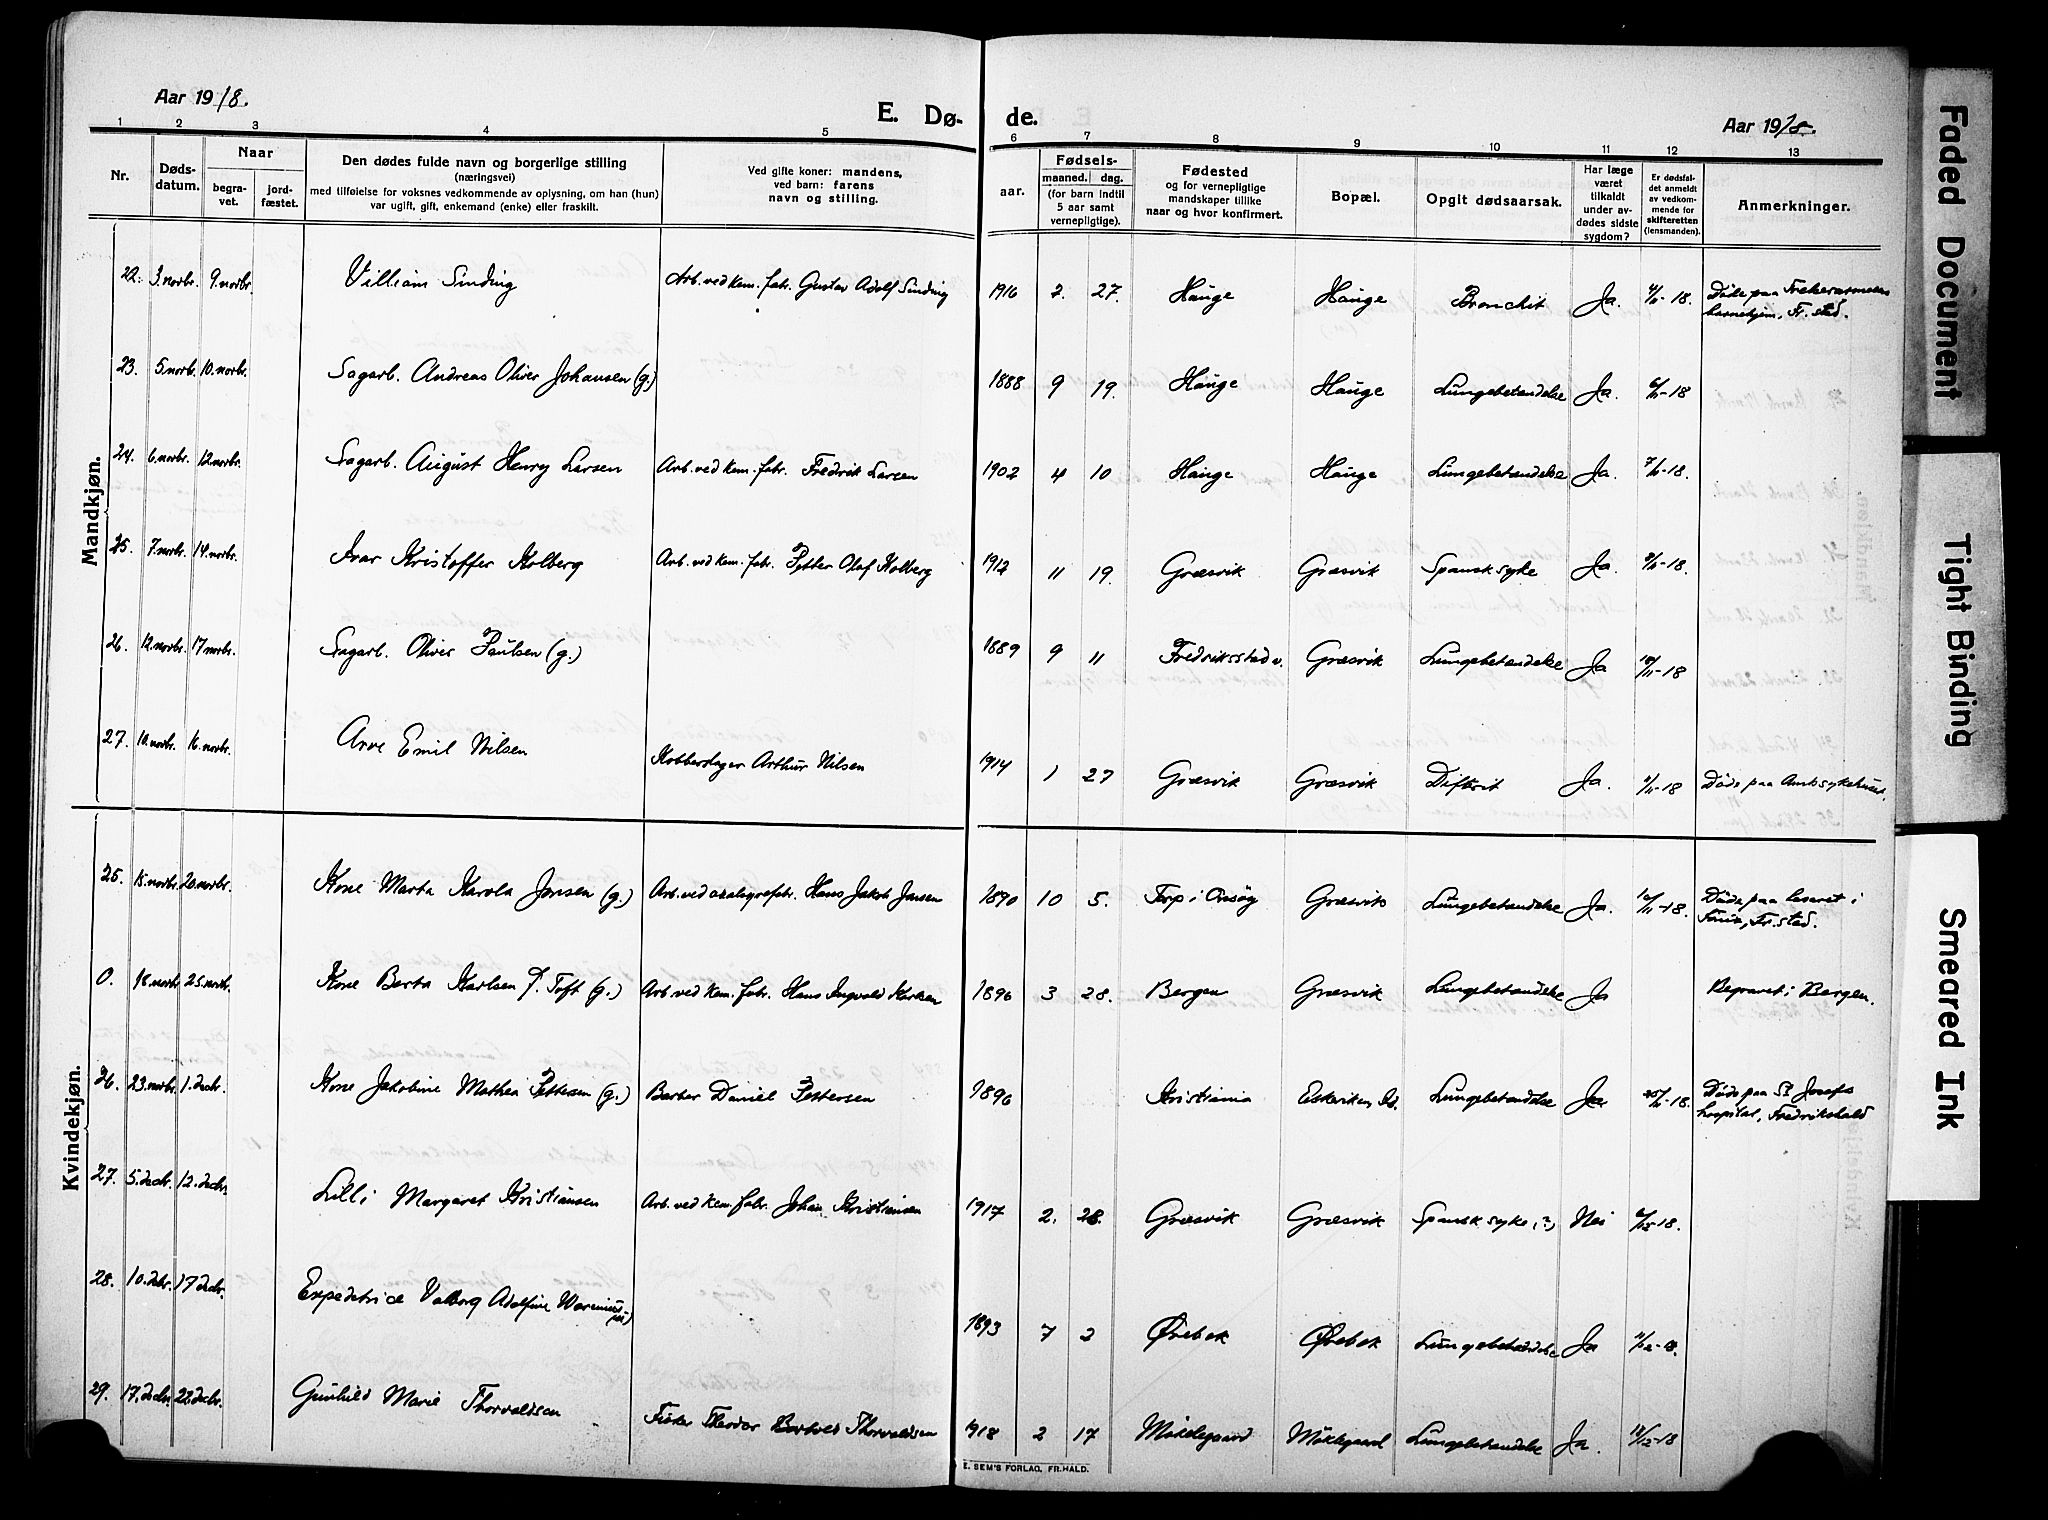 Aar 1918.
E. Dø- de.
Aar 1918.
1 2 3 4 5 6 7 8 9 10 11 12 13
Nr.
Døds-
datum.
Naar
begra-
vet.
jord-
fæstet.
Den dødes fulde navn og borgerlige stilling
(næringsvei)
med tilføielse for voksnes vedkommende av oplysning, om han (hun)
var ugift, gift, enkemand (enke) eller fraskilt.
Ved gifte koner: mandens,
ved barn: farens
navn og stilling.
aar.
Fødsels-
maaned. dag.
(for barn indtil
5 aar samt
vernepligtige).
Fødested
og for vernepligtige
mandskaper tillike
naar og hvor konfirmert.
Bopæl.
Opgit dødsaarsak.
Har læge
været
tilkaldt
under av-
dødes sidste
sygdom?
Er dødsfal-
det anmeldt
av vedkom-
mende for
skifteretten
(lensmanden).
Anmerkninger.
Mandkjøn.
22. 3. novbr. 9. novbr. William Sinding Arb. ved kem. fabr. Gustav Adolf Sinding 1916 2. 27. Hauge Hauge Bronchit Ja. 4/11-18. Døde paa Frelsesarmeens
barnehjem, Fr.stad.
23. 5. novbr. 10. novbr. Sagarb. Andreas Oliver Johansen (g.) 1888 9 19. Hauge Hauge Lungebetændelse Ja. 6/11-18
24. 6. novbr. 12. novbr. Sagarb. August Henry Larsen Arb. ved kem. fabr. Fredrik Larsen 1902 4 10 Hauge Hauge Lungebetændelse Ja. 7/11-18.
25. 7. novbr. 14. novbr. Ivar Kristoffer Kolberg Arb. ved kem. fabr. Petter Olaf Kolberg 1912 11 19. Græsvik Græsvik Spansk syke Ja. 8/11-18.
26. 12. novbr. 17 novbr. Sagarb. Oliver Paulsen (g.) 1889 9 11 Fredriksstad v. Græsvik Lungebetændelse Ja /11-18
27. 10. novbr. 16. novbr. Arve Emil Nilsen Kobberslager Arthur Nilsen 1914 1 27 Græsvik Græsvik Difterit Ja. /11-18 Døde paa Amtssykehuset.
Kvindekjøn.
25. 15. novbr. 20. novbr. Kone Marta Karola Jensen (g.) Arb. ved Hans Jakob Jensen 1890 10 5. Torp i Onsøy Græsvik Lungebetændelse Ja. /11-18. Døde paa lasaret i
Fr.stad.
0. 18. novbr. 25. novbr. Kone Berta Karlsen f. Toft (g.) Arb. ved kem. fabr. Hans Ingvald Karlsen 1896 3 28. Bergen Græsvik Lungebetændelse Ja Begravet i Bergen.
26. 23. novbr. 1. decbr. Kone Jakobine Mathea Pettersen (g.) Barber Daniel Pettersen 1896 Kristiania Lungebetændelse Ja 25/11-18. Døde paa St. Josefs
hospital, Fredrikshald
27. 5. decbr. 12. decbr. Lilli Margaret Kristiansen Arb. ved kem. fabr. Johan Kristiansen 1917 2. 28. Græsvik Græsvik Spansk syke (?) Nei 6/12-18.
28. 10. decbr. 17 decbr. Expeditrice Valborg Adolfine 1893 7 2 Ørebek Ørebek Lungebetændelse Ja 11/12-18.
29. 17. decbr. 22. decbr. Gunhild Marie Thorvaldsen Fisker Theodor Thorvaldsen 1918 2 17 Møklegaard Møklegaard Lungebetændelse Ja. /12-18
E. SEM'S FORLAG, FR.HALD.
Faded Document
Tight Binding
Smeared Ink